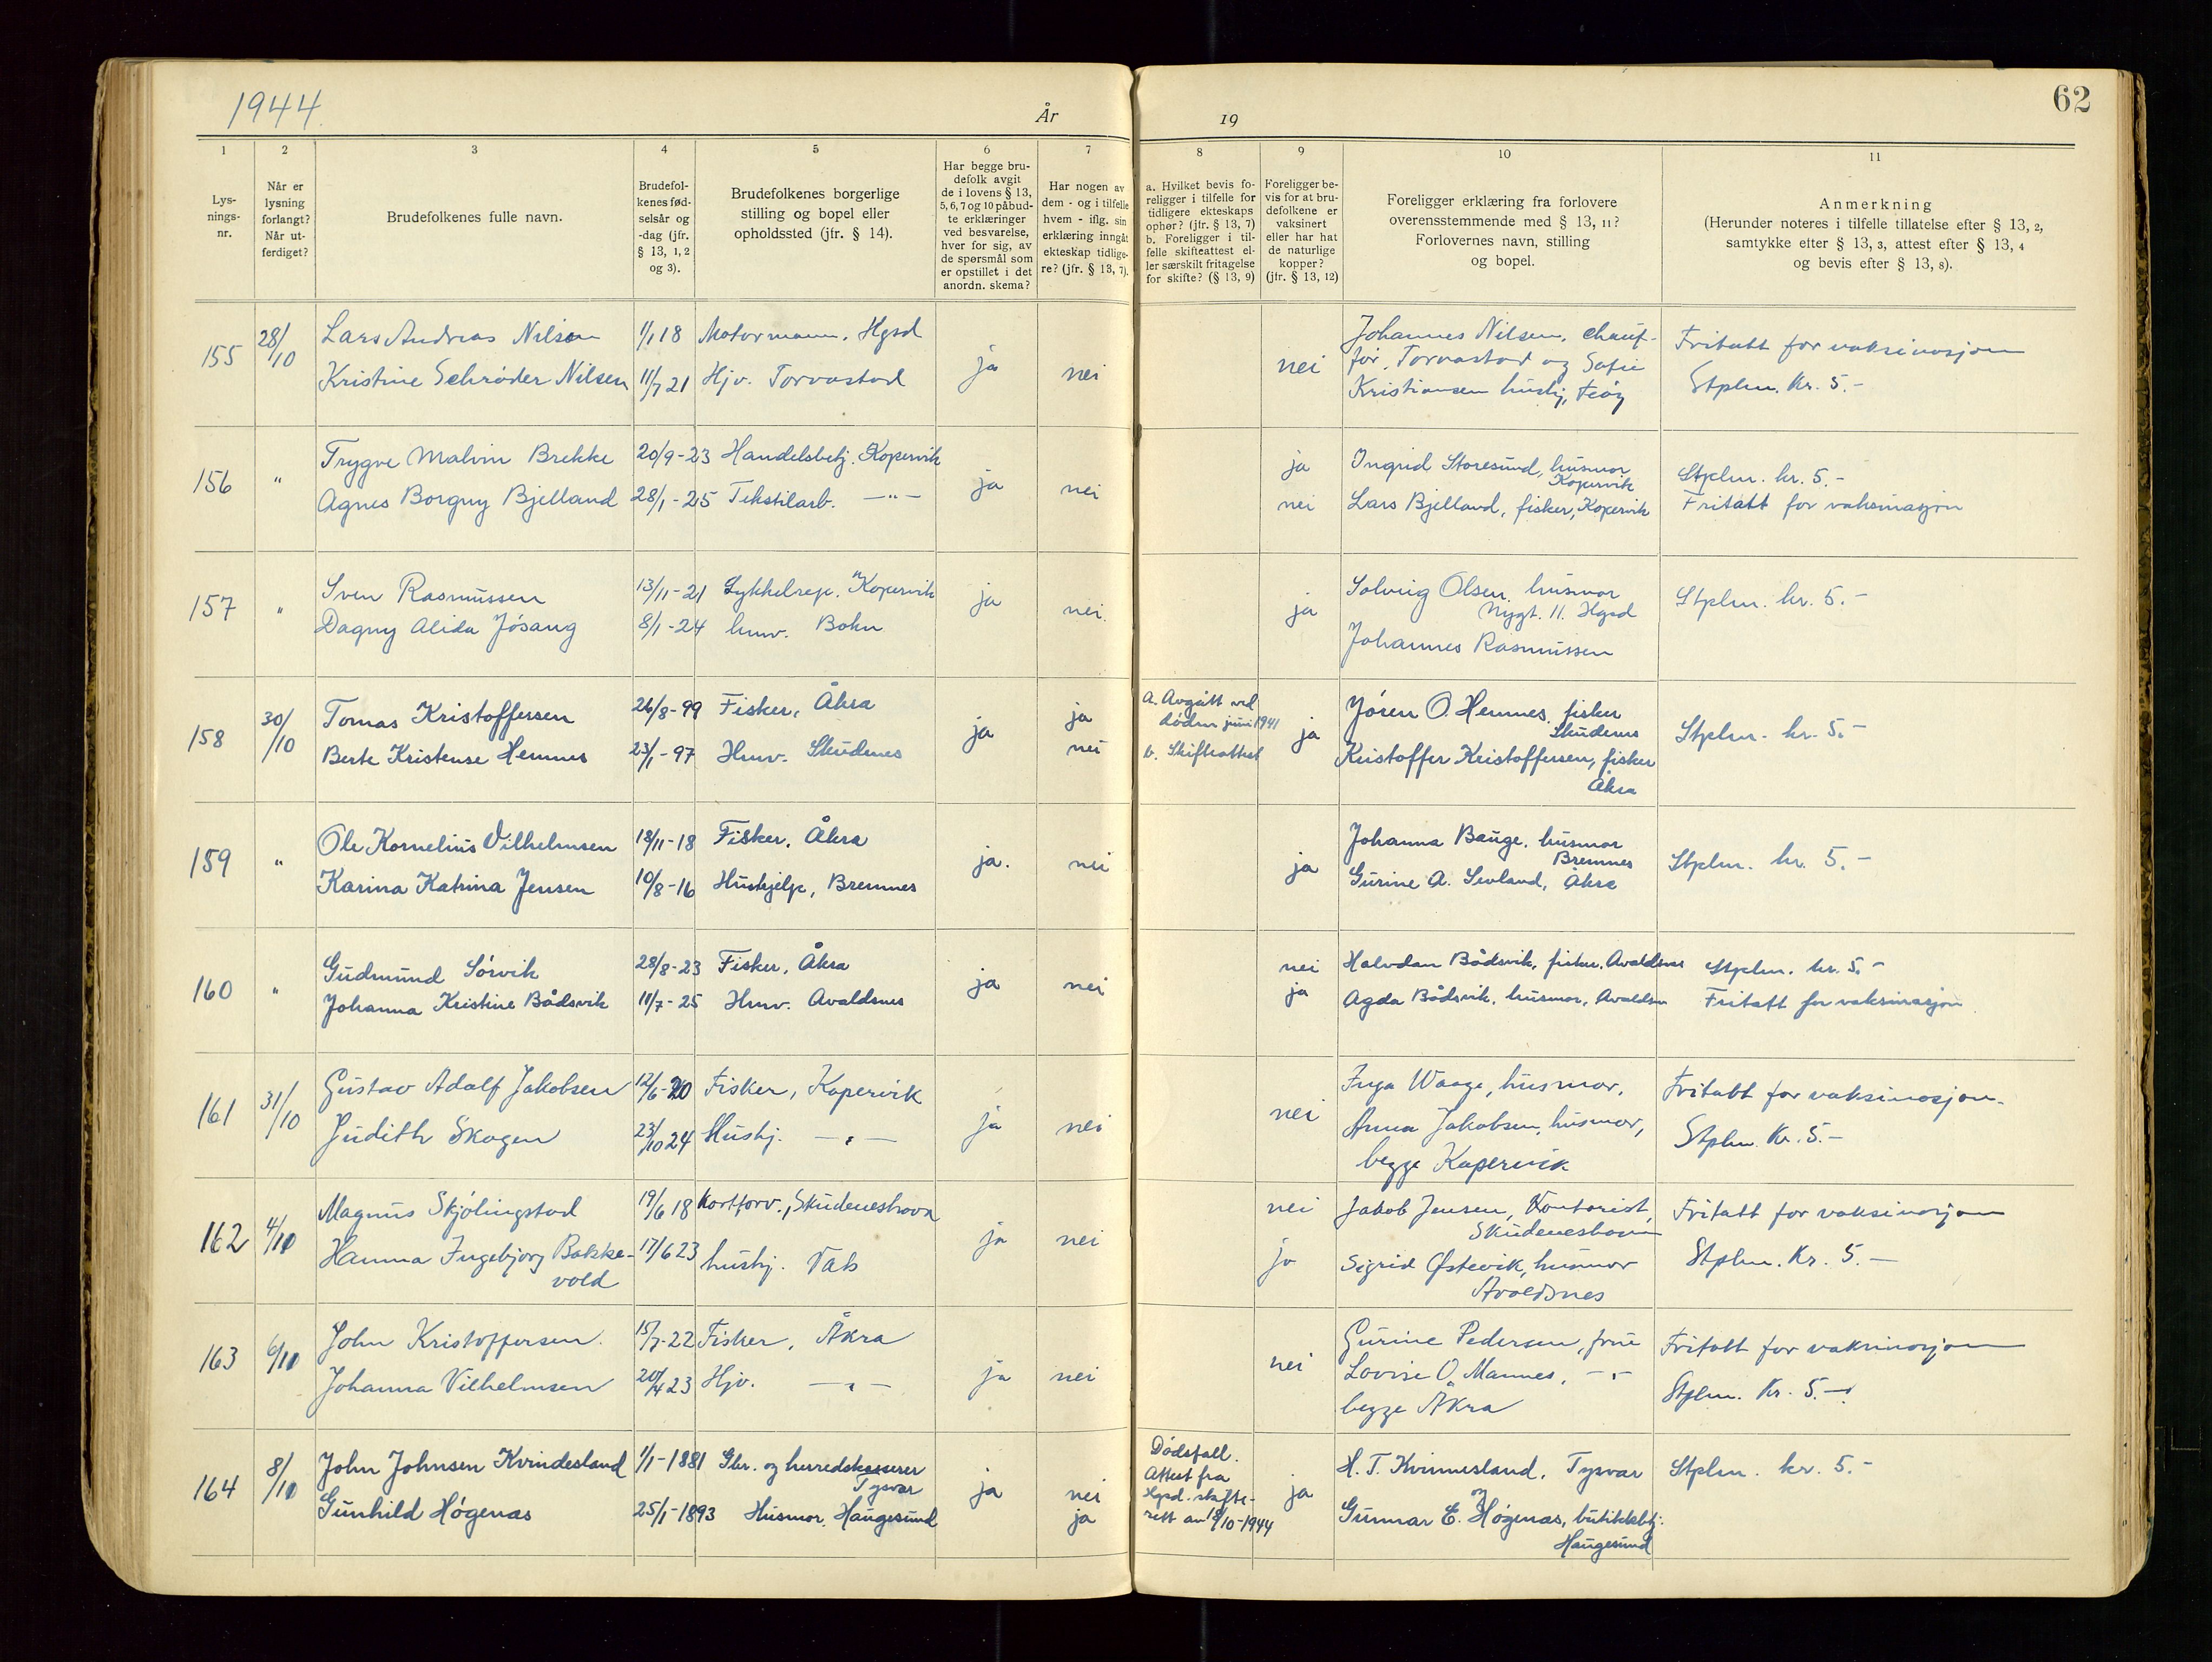 1944.
År
19
62
1
2
3
4
5
6
7
8
9
10
11
Lys-
nings-
nr.
Når er
lysning
forlangt?
Når ut-
ferdiget?
Brudefolkenes fulle navn.
Brudefol-
kenes fød-
selsår og
-dag (jfr.
§ 13, 1, 2
og 3).
Brudefolkenes borgerlige
stilling og bopel eller
opholdssted (jfr. § 14).
Har begge bru-
defolk avgit
de i lovens § 13,
5, 6, 7 og 10 påbud-
te erklæringer
ved besvarelse,
hver for sig, av
de spørsmål som
er opstillet i det
anordn. skema?
Har nogen av
dem - og i tilfelle
hvem - iflg. sin
erklæring inngåt
ekteskap tidlige-
re? (jfr. § 13, 7).
a. Hvilket bevis fo-
religger i tilfelle for
tidligere ekteskaps
ophør? (jfr. § 13, 7)
b. Foreligger i til-
felle skifteattest el-
ler særskilt fritagelse
for skifte? (§ 13, 9)
Foreligger be-
vis for at bru-
defolkene er
vaksinert
eller har hat
de naturlige
kopper?
(jfr. § 13, 12)
Foreligger erklæring fra forlovere
overensstemmende med § 13, 11?
Forlovernes navn, stilling
og bopel.
Anmerkning
(Herunder noteres i tilfelle tillatelse efter § 13, 2,
samtykke efter § 13, 3, attest efter § 13, 4
og bevis efter § 13, 8).
155 28/10 Lars Andreas Nilsen 1/1 18 Motormann, Hgsd
Kristine Schrøder Nilsen 11/7 21 Hjv. Torvastad ja nei
nei Johannes Nilsen, chauf-
før, Torvastad og Sofie
Kristiansen hushj, Feøy
Fritatt for vaksinasjon
Stplm. Kr. 5.-
156 " Trygve Malvin Brekke 20/9-23 Handelsbetj. Kopervik
Agnes Borgny Bjelland 28/1-25 Tekstilarb. —"— ja nei
ja Ingrid Storesund, husmor
Kopervik
nei Lars Bjelland, fisker, Kopervik
Stplm. kr. 5.-
Fritatt for vaksinasjon
157 " Sven Rasmussen 13/11-21 Sykkelrep. Kopervik
Dagny Alida Jøsang 8/1-24 hmv. Bokn ja nei.
ja Solveig Olsen, husmor
Nygt. 11. Hgsd
Johannes Rasmussen
Stplm. kr. 5.-
158 30/10 Tomas Kristoffersen 26/8-99 Fisker, Åkra
Berte Kristense Hemnes 23/1-97 Hmv. Skudnes ja ja
nei
a. Avgått ved
døden juni 1941
b. Skifteattest
ja Jøren O. Hemnes, fisker
Skudenes
Kristoffer Kristoffersen, fisker
Åkra
Stplm. kr. 5.-
159 " Ole Kornelius Vilhelmsen 18/11-18 Fisker, Åkra
Karina Katrina Jensen 10/8-16 Hushjelp, Bremnes ja. nei
ja Johanna Bauge, husmor
Bremnes
Gurine A. Sevland, Åkra
Stplm. kr. 5.-
160 " Gudmund Sørvik 28/8-23 Fisker, Åkra
Johanna Kristine Bådsvik 11/7-25 Hmv. Avaldsnes ja nei
nei Halvdan Bådsvik, fisker, Avaldsnes
ja Agda Bådsvik, husmor, Avaldsn
Stplm. kr. 5.-
Fritatt for vaksinasjon
161 31/10 Gustav Adolf Jakobsen 12/6-20 Fisker, Kopervik
Judith Skogen 23/10 24 Hushj. —"— ja nei
nei Inga Waage, husmor,
Anna Jakobsen, husmor,
begge Kopervik
Fritatt for vaksinasjon.
Stplm. Kr. 5.-
162 4/11 Magnus Skjølingstad 19/6 18 Kortforv., Skudeneshavn
Hanna Ingebjørg Bakke-
vold 17/6 23 hushj. Vats ja nei
nei Jakob Jensen, Kontorist,
Skudeneshavn
ja Sigrid Østevik, husmor
Avaldsnes
Fritatt for vaksinasjon
Stplm. Kr. 5.-
163 6/11 John Kristoffersen. 15/7-22 Fisker, Åkra
Johanna Vilhelmsen 20/4 23 Hjv. —"— ja nei
nei Gurine Pedersen, frue
Lovise O. Mannes, —"—
begge Åkra
Fritatt for vaksinasjon
Stplm. Kr. 5.-
164 8/11 John Johnsen Kvindesland 1/1-1881 Gbr. og herredskasserer
Tysvær
Gunhild Høgenas 25/1-1893 Husmor, Haugesund ja nei
ja
Dødsfall.
Attest fra
Hgsd. skifte-
rett av 18/10-1944
ja H. T. Kvinnesland, Tysvær
og
Gunnar E. Høgenas, butikkbtj.
Haugesund
Stplm. kr. 5.-